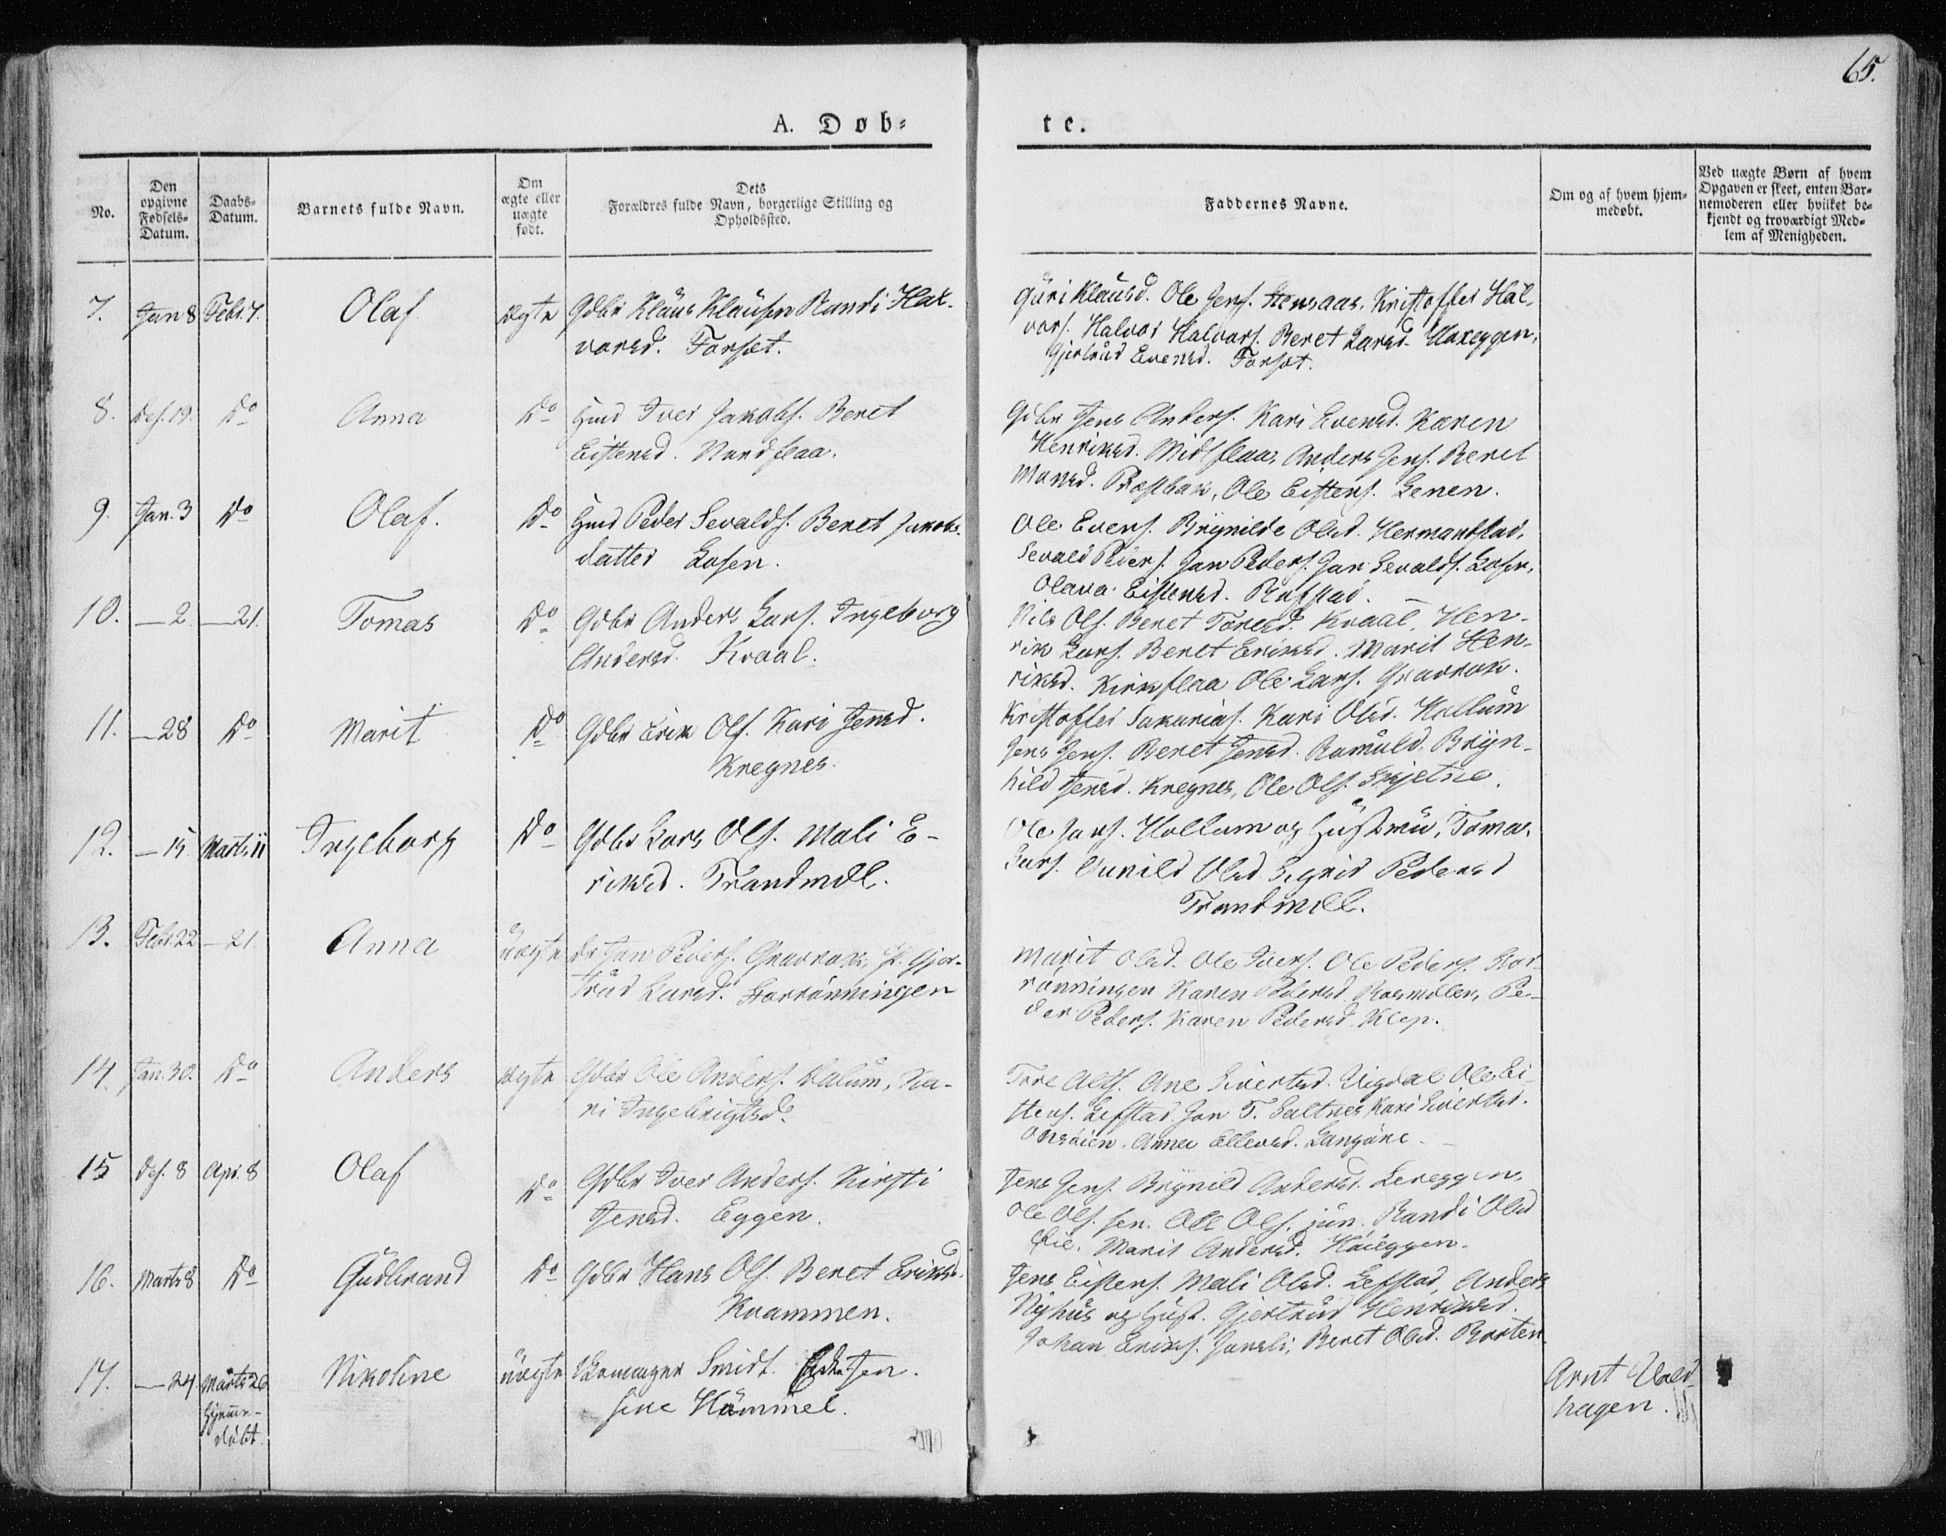 65.
A. Døb-
te.
No.
Den opgivne Fødsels-Datum.
Daabs-Datum.
Barnets fulde Navn.
Om ægte eller uægte født.
Dets Forældres fulde Navn, borgerlige Stilling og Opholdssted.
Faddernes Navne.
Om og af hvem hjem-medøbt.
Ved uægte Børn af hvem Opgaven er skeet, enten Bar-nemoderen eller hvilket be-kjendt og troværdigt Med-lem af Menigheden.
7. Jan 8 Febr 7. Olaf ægte Gdbr Klaus Klausen Randi Hal-
vorsd. Forset.
Guri Klausd. Ole Jens. Stensaas, Kristoffer Hal-
vors. Halvor Halvors. Beret Larsd.
Gjertrud Evensd. Forset.
8. Des. 19. Do Anna Do Hmd Iver Jakobs. Beret
Eistensd. Nordflaa.
Gdbr Jens Anders. Kari Evensd. Karen
Henriksd. Midtflaa, Anders Jens. Beret
Monsd. Ole Eistens. Lenen.
9. Jan. 3 Do Olaf. Do Hmd Peder Sevalds. Beret Jakobs-
datter Losen.
Ole Evens. Brynilde Olsd. Hermanstad,
Sevald Peders. Jon Peders. Jon Sevalds. Losen,
Olava Eistensd.
10. — 2. — 21. Tomas Do Gdbr Anders Lars. Ingeborg
Andersd. Kvaal.
Nils Ols. Beret Toresd. Kvaal, Hen-
rik Lars. Beret Eriksd. Marit Hen-
riksd. Kirkflaa Ole Lars. Gravrok.
11. — 28 Do Marit Do Gdbr Erik Ols. Kari Jensd.
Kregnes.
Kristoffer Sakarias. Kari Olsd. Hollum
Jens Jens. Beret Jensd. Bryn-
hild Jensd. Kregnes, Ole Ols. Skjetne.
12. — 15. Marts 11 Ingeborg Do Gdbr Lars Ols. Mali E-
riksd. Trandmell.
Ole Lars. Hollum og Hustru, Tomas
Lars. Gunild Olsd. Sigrid Pedersd
Trandmell.
13. Febr. 22 — 21. Anna uægte Jon Peders. Gravrok, P. Gjer-
trud Larsd. Storrønningen
Marit Olsd. Ole Ivers. Ole Peders. Stor-
rønningen Karen Pedersd. Pe-
der Peders. Karen Pedersd. Klep.
14. Jan. 30. Do Anders ægte Gdbr Ole Anders. Dalum, Ka-
ri Ingebrigtsd.
Tore Ane Sivertsd. Vigdal Ole Ei-
stens. Lefstad Jon T. Saltnes Kari Sivertsd.
Onsøien. Anna Ellevsd.
15 Des. 8 Apr. 8 Olaf Do Gdbr Iver Anders. Kirsti
Jensd. Eggen.
Jens Jens. Brynild Andersd. Lereggen,
Ole Ols. sen. Ole Ols. jun. Randi Olsd
Øie. Marit Andersd. Høieggen.
16. Marts 8 Do Gudbrand Do Gdbr Hans Ols. Beret Eriksd.
Kvammen.
Jens Eistens. Mali Olsd. Lefstad, Anders
Nyhus og Hust. Gjertrud Henriksd.
Johan Eriks. Beret Olsd. Borten
17. — 24. Marts 26 Hjemme-
døbt. Nikoline uægte Smidt.
Hammel.
Arnt
hagen.